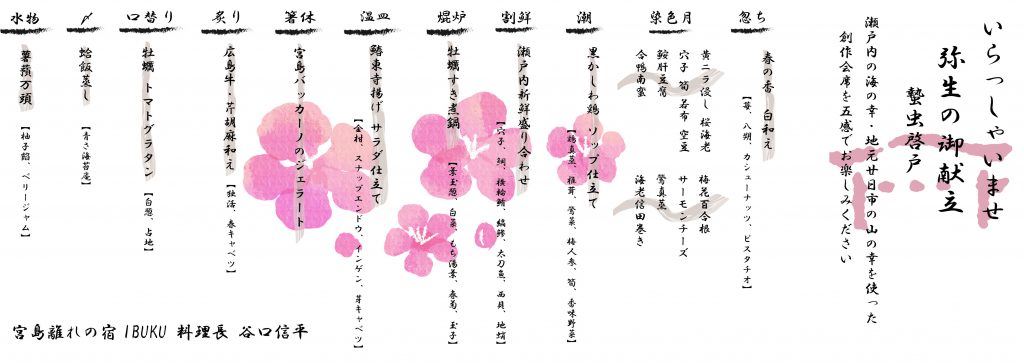 いらっしゃいませ
弥生の御献立
蟄虫啓戸
瀬戸内の海の幸・地元廿日市の山の幸を使った
創作会席を五感でお楽しみください
忽ち
春の香 白和え
【苺、八朔、カシューナッツ、ピスタチオ】
染色月
黄ニラ浸し 桜海老 梅花百合根
穴子 筍 若布 空豆 サーモンチーズ
鮟肝豆腐 鶯真蒸
合鴨南蛮 海老信田巻き
潮
黒かしわ鶏 ソップ仕立て
【鶏真蒸、椎茸、鶯菜、梅人参、筍、香味野菜】
割鮮
瀬戸内新鮮盛り合わせ
【穴子、鯛、横輪鮪、縞鯵、太刀魚、西貝、地蛸】
焜炉
牡蠣すき煮鍋
【葉玉葱、白菜、もち湯葉、春菊、玉子】
温皿
鰆東寺揚げ サラダ仕立て
【金柑、スナップエンドウ、インゲン、芽キャベツ】
箸休
宮島バッカーノのジェラート
炙り
広島牛・芹胡麻和え
【独活、春キャベツ】
口替り
牡蠣 トマトグラタン
【白葱、占地】
〆
蛤飯蒸し
【青さ海苔庵】
水物
薯蕷万頭
【柚子餡、ベリージャム】
宮島離れの宿 IBUKU 料理長 谷口信平